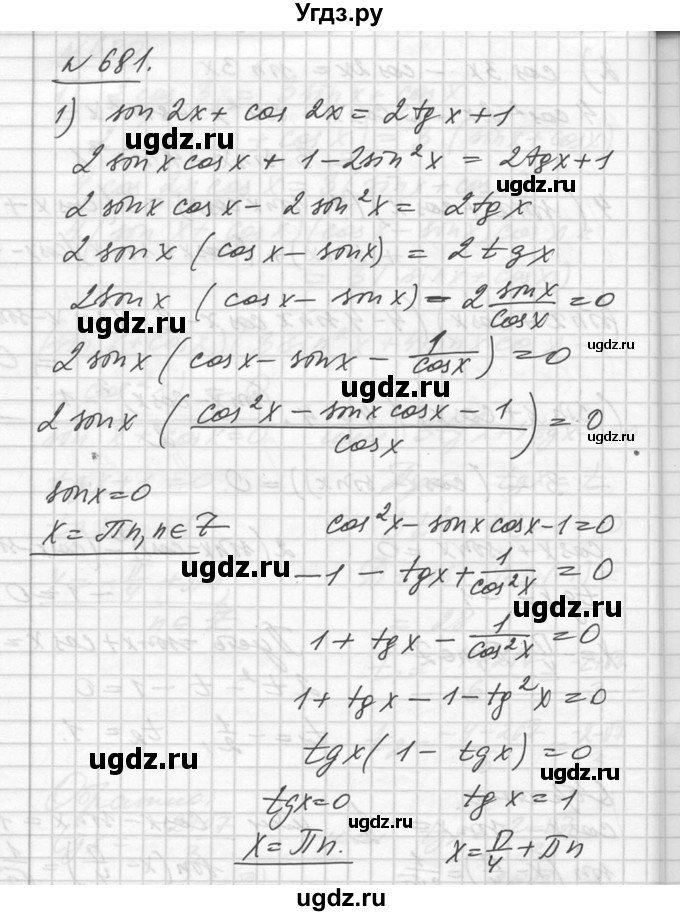 Угдз.ру
№ 681.
1) sin 2x + cos 2x = 2tg x + 1
ugdz.ru
2 sin x cos x + 1 - 2sin²x = 2tgx + 1
ugdz.ru
2 sin x cos x - 2 sin²x = 2tg x
2 sin x (cos x - sin x) = 2tgx
2 sin x (cos x - sin x) - 2 sin x / cos x = 0
ugdz.ru
ugdz.ru
2 sin x (cos x - sin x - 1 / cos x) = 0
ugdz.ru
2 sin x ((cos²x - sin x cos x - 1) / cos x) = 0
ugdz.ru
sin x = 0
x = Пn, n ∈ Z
cos²x - sin x cos x - 1 = 0
ugdz.ru
-1 - tgx + 1 / cos²x = 0
ugdz.ru
1 + tg x - 1 / cos²x = 0
1 + tg x - 1 - tg²x = 0
ugdz.ru
tgx (1 - tgx) = 0
ugdz.ru
tgx = 0 tg x = 1
ugdz.ru
ugdz.ru
x = Пn. x = П/4 + Пn
ugdz.ru